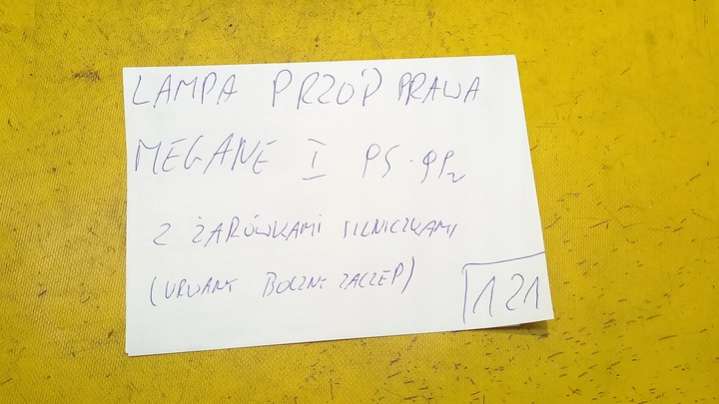 LAMPA PRZÓD PRAWA
MEGANE I PS
Z ŻARÓWKAMI SILNICZKAMI
(URWANY BOCZNY ZACZEP)
121